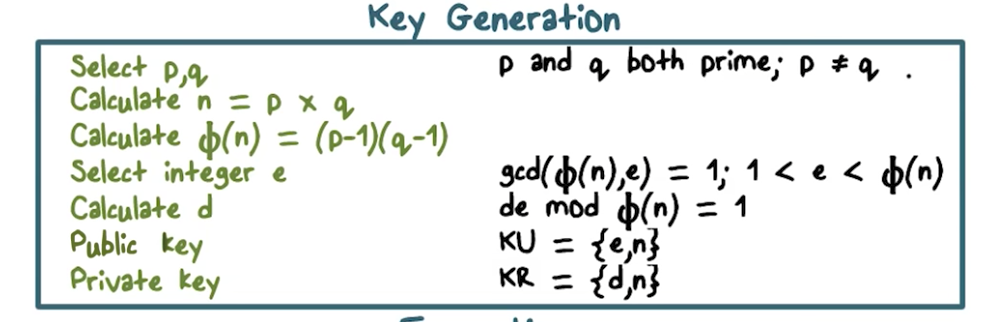 Key Generation
Select p,q p and q both prime; p ≠ q .
Calculate n = p x q
Calculate ϕ(n) = (p-1)(q-1)
Select integer e gcd(ϕ(n),e) = 1; 1 < e < ϕ(n)
Calculate d de mod ϕ(n) = 1
Public key KU = {e,n}
Private key KR = {d,n}